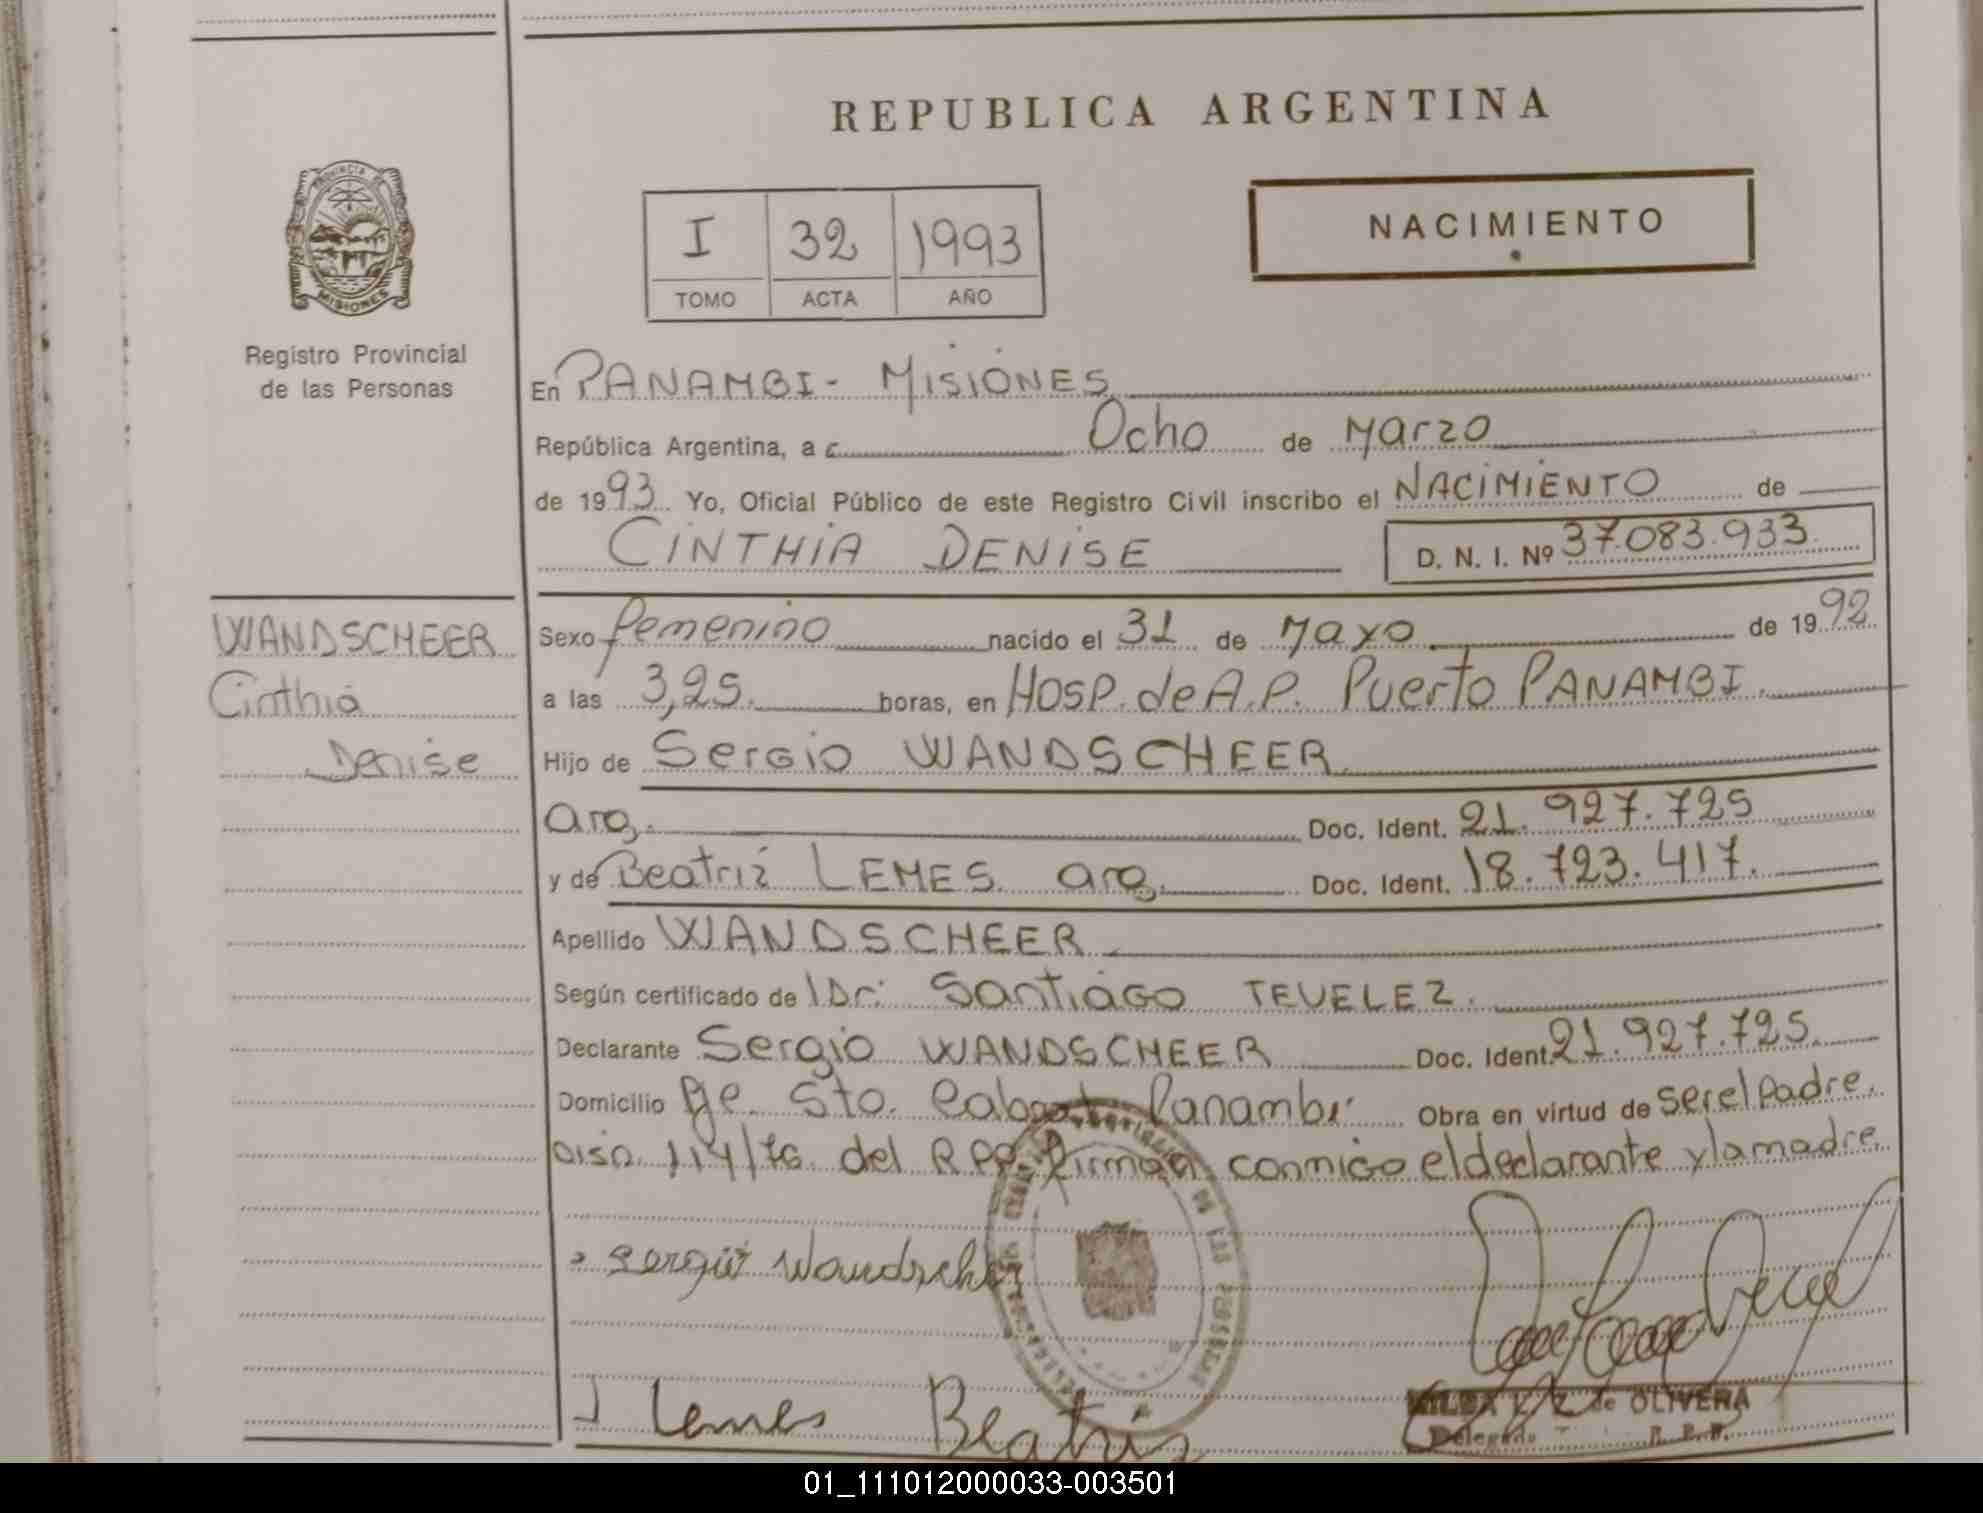 REPUBLICA ARGENTINA
PROVINCIA DE
MISIONES
Registro Provincial
de las Personas
I 32 1993
TOMO ACTA AÑO
NACIMIENTO
En PANAMBI - MISIONES
República Argentina, a Ocho de Marzo
de 1993 Yo, Oficial Público de este Registro Civil inscribo el NACIMIENTO de
CINTHIA DENISE D. N. I. Nº 37.083.933.
WANDSCHEER
Cinthia
Denise
Sexo femenino nacido el 31 de Mayo de 1992
a las 3,25. horas, en HOSP. de A.P. Puerto PANAMBI.
Hijo de Sergio WANDSCHEER
arg. Doc. Ident. 21.927.725
y de Beatriz LEMES arg. Doc. Ident. 18.723.417.
Apellido WANDSCHEER
Según certificado de Dr. Santiago TEVELEZ.
Declarante Sergio WANDSCHEER Doc. Ident. 21.927.725.
Domicilio Pje. Sto. Panambi Obra en virtud de ser el Padre.
Disp. 114/76 del RPP firman conmigo el declarante y la madre
Sergio Wandscheer
Lemes Beatriz
de OLIVERA
Delegada R. P. P.
01_111012000033-003501